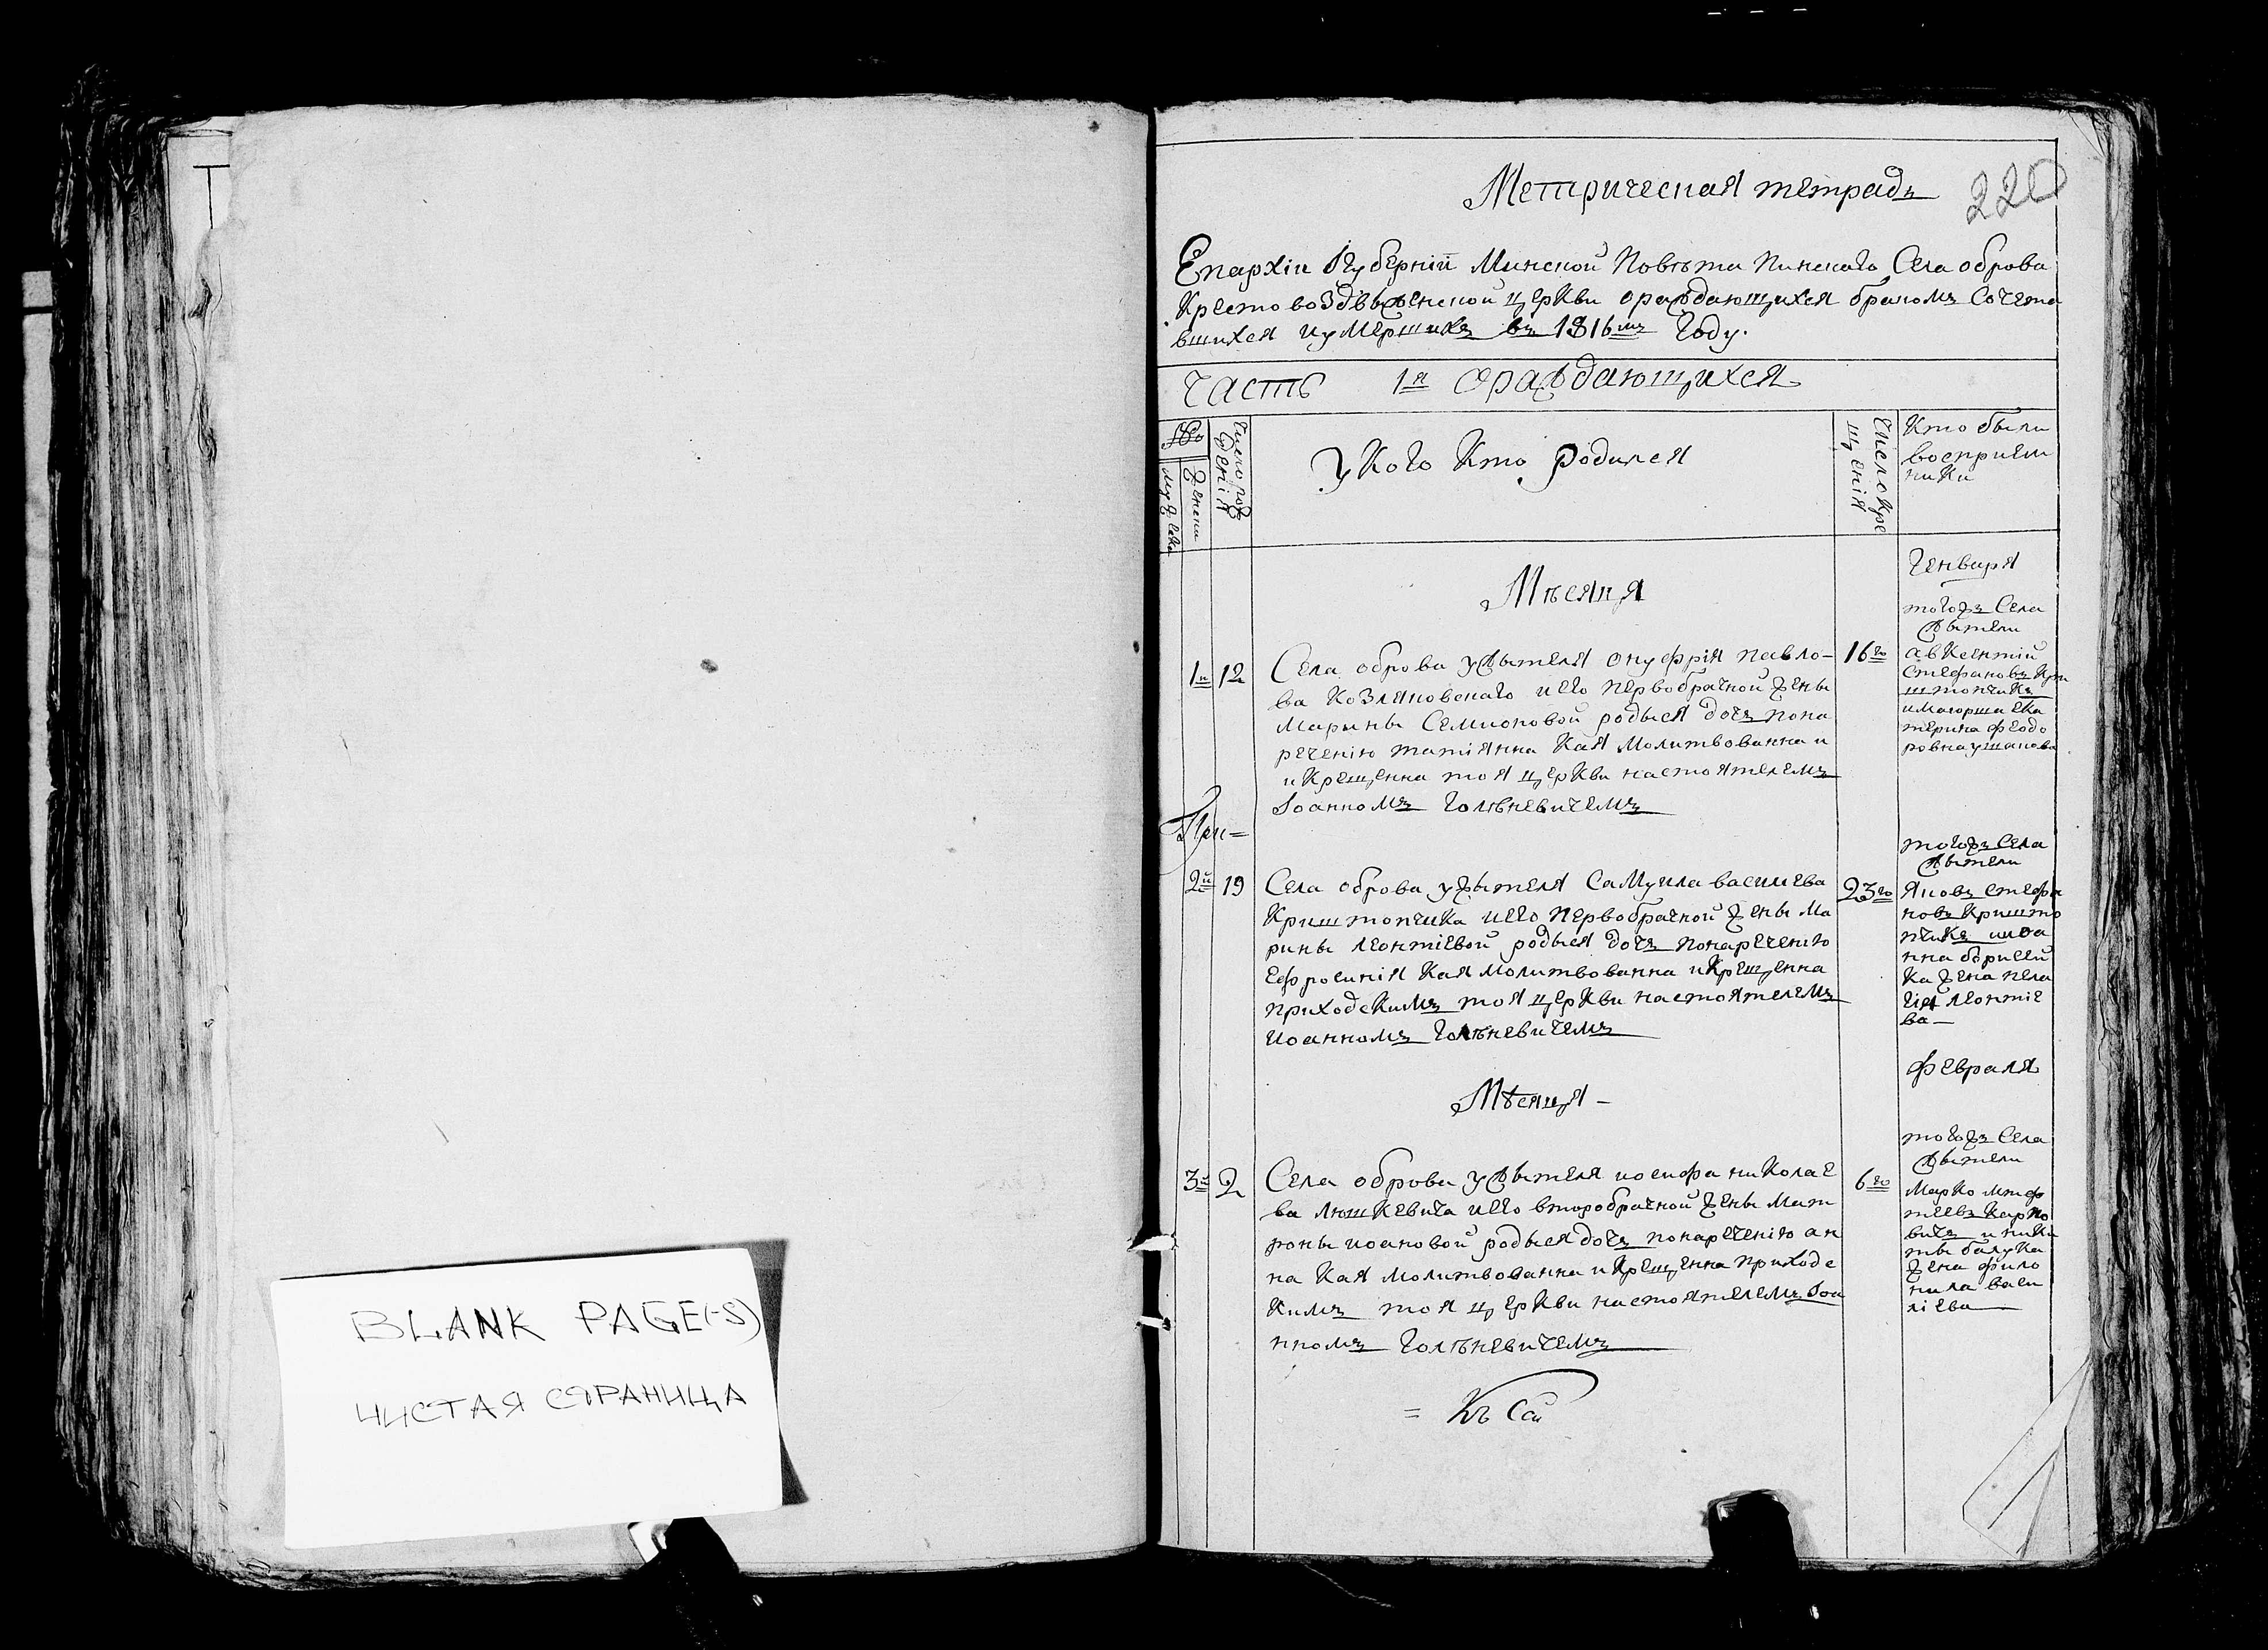 BLANK PAGE(-S)
ЧИСТАЯ СТРАНИЦА
Метрическая тетрадъ
220
Епархіи Губерніи Минской Повѣта Пинскаго Села оброва
Крестовоздвиженской церкви ораждающихся бракомъ Сочета
вшихся иумершихъ въ 1816мъ Году.
Часть 1я ораждающихся
Число рож
денія
женска
мужеска
У Кого Кто Родился
Число Кре
щенія
Кто были
восприем
ники
Мѣсяца
Генваря
1я 12
Села оброва ужытеля онуфрія павло-
ва Козляновскаго иего первобрачной жены
Марыны Семионовой родыся дочъ пона
речению татіянна Кая Молитвованна и
и Крещенна тоя церкви настоятелемъ
Іоанномъ Голѣневичемъ
16го
тогожъ Села
жытели
авксентій
Стефановъ Кри
штопчикъ
ека
терина феодо
ровна
При=
2й 19
Села оброва ужытеля Самуила василева
Криштопчика иего первобрачной жены Ма
рины леонтіевой родыся дочъ понаречению
Ефросинія Кая молитвованна и Крещенна
приходскимъ тоя церкви настоятелемъ
иоанномъ Голѣневичемъ
23го
тогожъ Села
жытели
Яковъ стефа
новъ Кришто
пчикъ иива
нна
ка жена пела
гія леонтіе
ва
Мѣсяца
февраля
3я 2
Села оброва ужытеля иосифа николае
ва люшкевича иего второбрачной жены Мат
роны иоановой родыся дочъ понаречению ан
на Кая молитвованна и Крещенна приходс
Кимъ тоя церкви настоятелемъ Іоа
нномъ Голѣневичемъ
6го
тогожъ Села
жытели
Марко матф
теевъ Карпо
вичъ и ники
ты балука
жена фило
нила васи
лієва
= Къ Сей